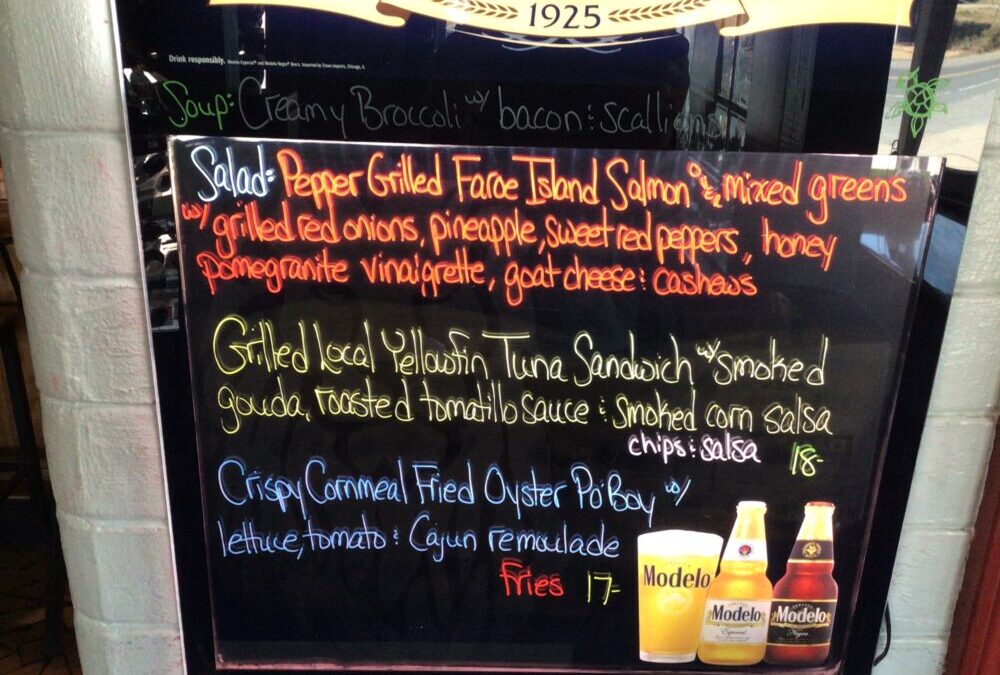 1925
Drink responsibly.
Soup: Creamy Broccoli w/ bacon & scallions
Salad: Pepper Grilled Faroe Island Salmon mixed greens
w/ grilled red onions, pineapple, sweet red peppers, honey
pomegranite vinaigrette, goat cheese & cashews
Grilled Local Yellowfin Tuna Sandwich w/ smoked
gouda, roasted tomatillo sauce & smoked corn salsa
chips & salsa 18-
Crispy Cornmeal Fried Oyster Po'Boy w/
lettuce, tomato & Cajun remoulade
Fries 17-
Modelo
Modelo
Especial
Modelo
Negra